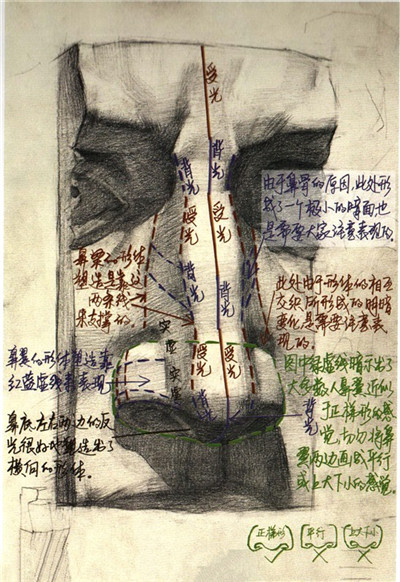 受光
背光
背光
受光
背光
受光
由于鼻骨的原因,此处形
成了一个极小的暗面,也
是需要大家注意表现的。
鼻梁的形体
塑造是靠这
两条线
来支撑的。
此处由于形体的相互
交织所形成的明暗
变化是需要注意表
现的。
实
虚
实
受光
受光
鼻翼的形体塑造靠
红蓝虚线来表现
背光
背光
背光
鼻底左右两边的反
光很好地塑造出了
横向的形体。
图中绿虚线暗示出了
大多数人鼻翼近似
于正梯形的感
觉,切勿将鼻
翼两边画成平行
或上大下小的感觉。
正梯形
平行
上大下小